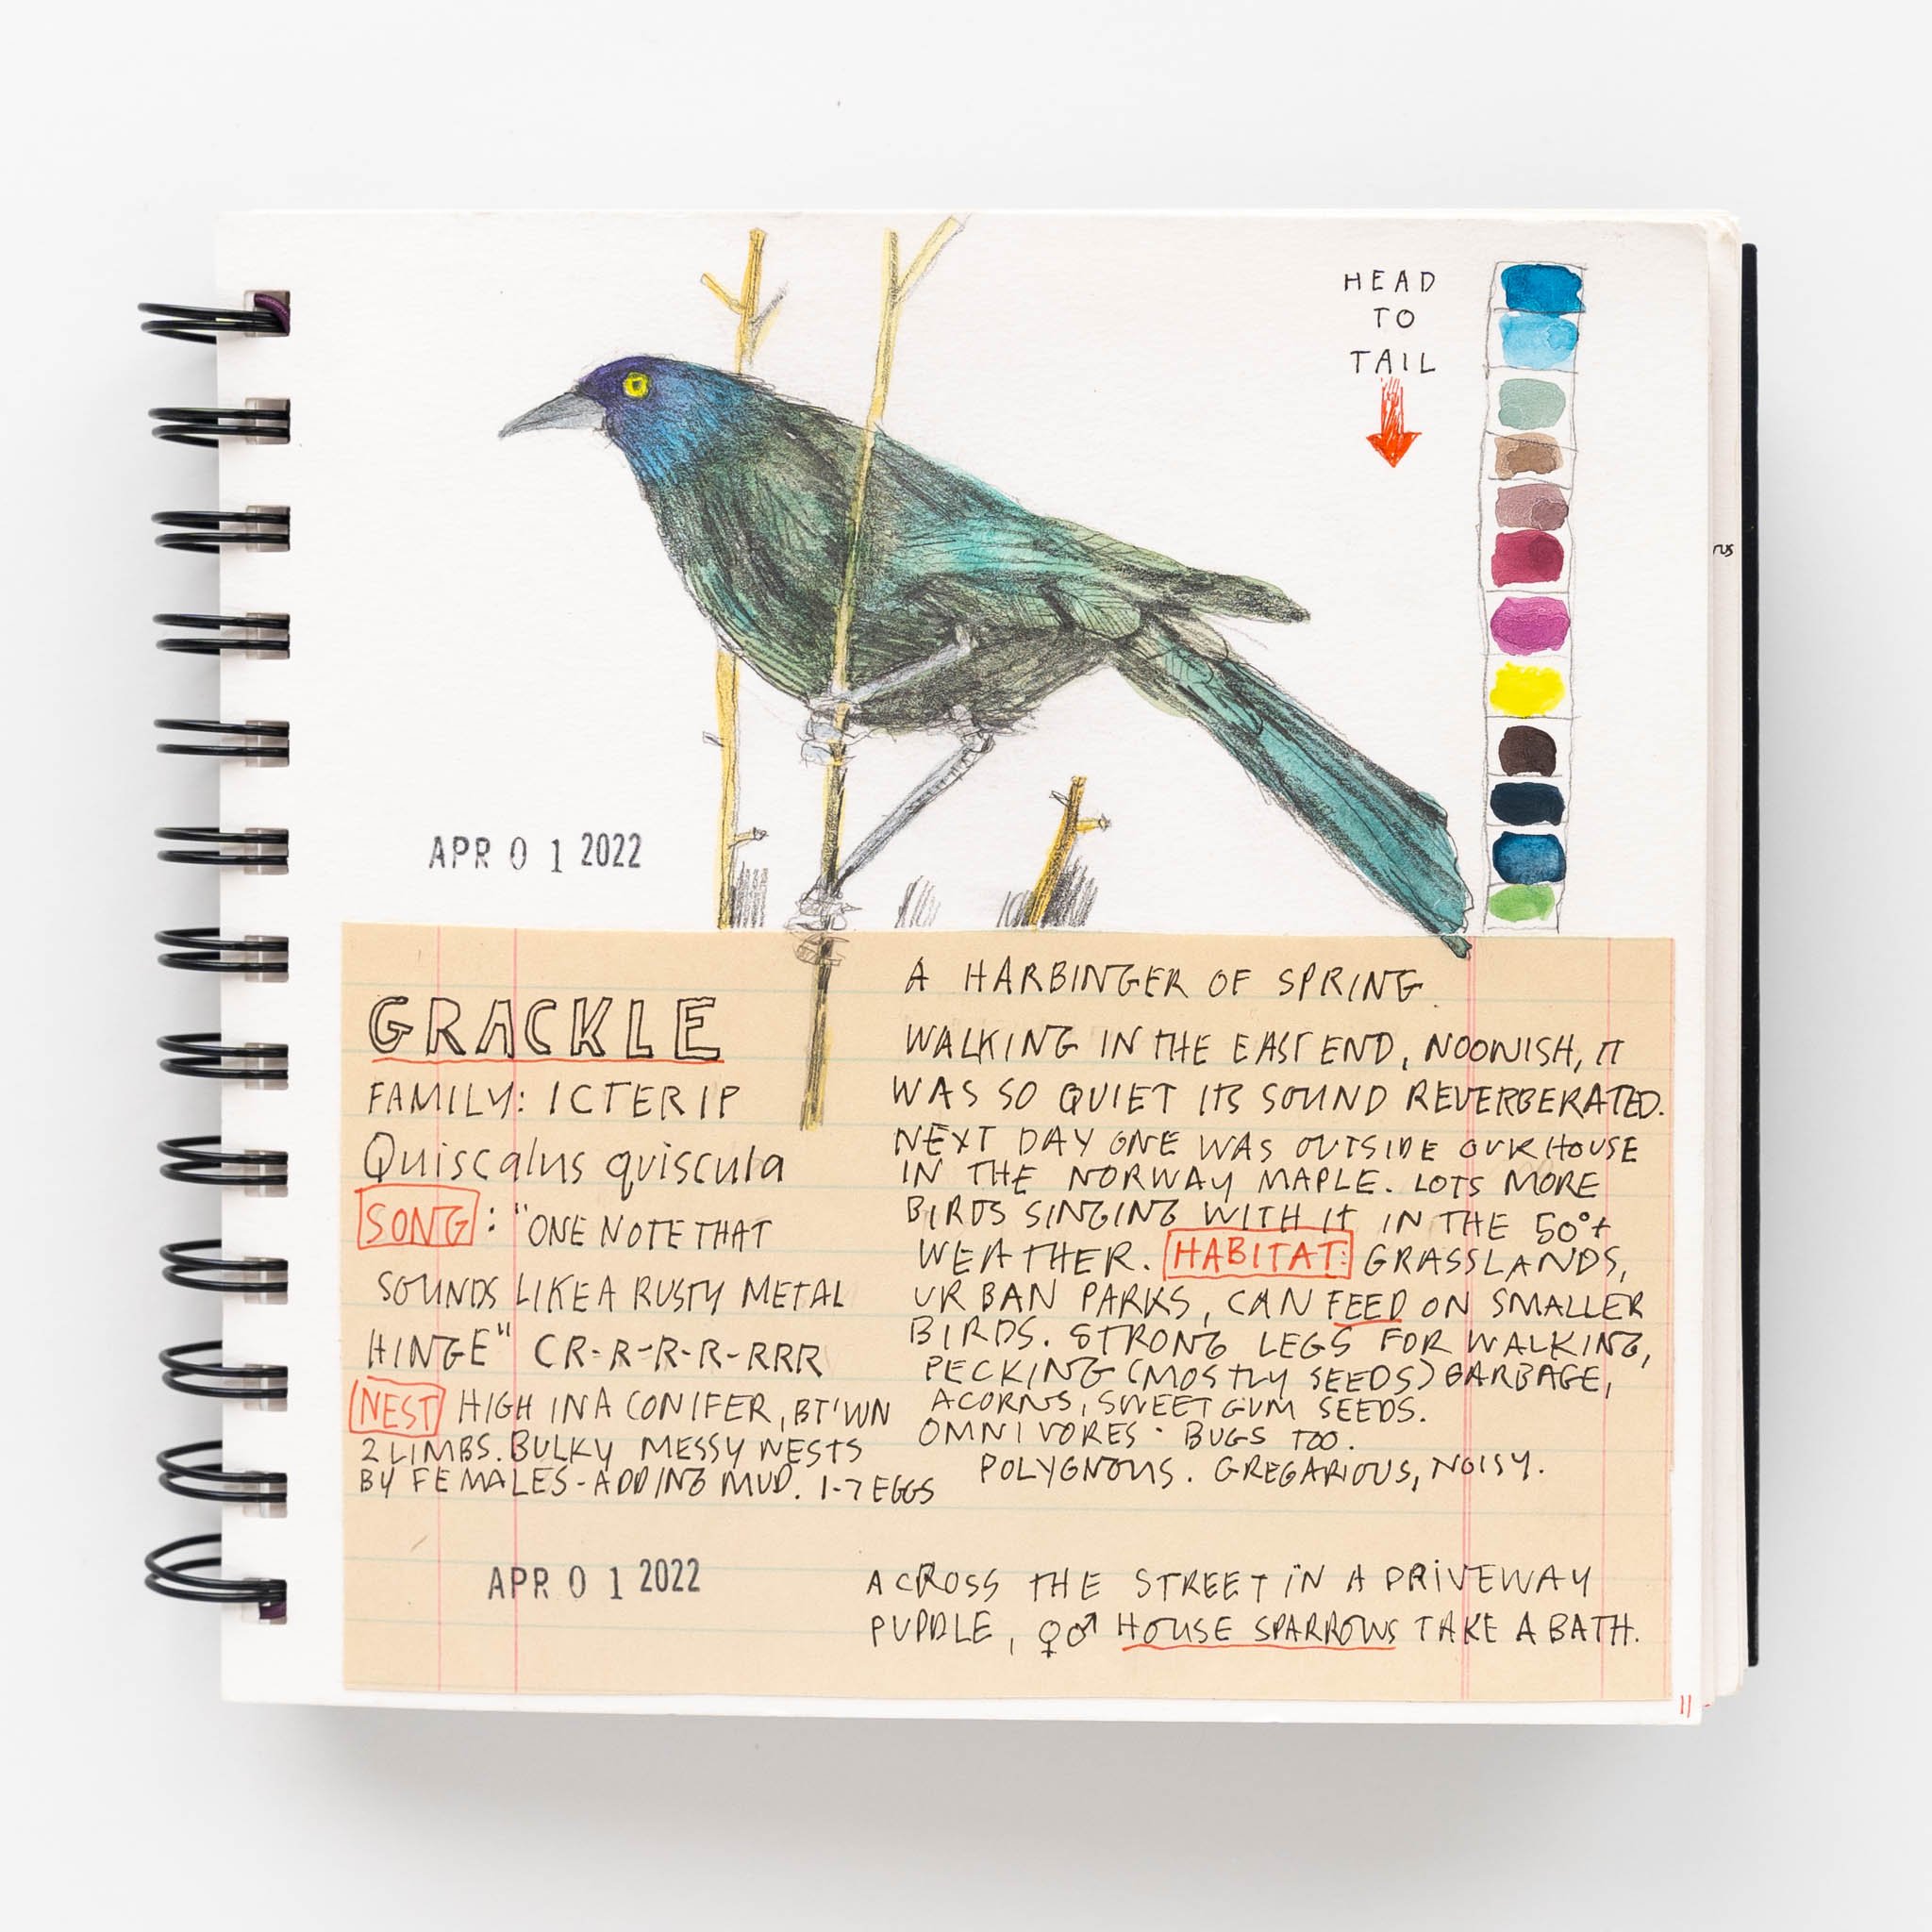 HEAD
TO
TAIL
APR 01 2022
GRACKLE
FAMILY: ICTERID
Quiscalus quiscula
SONG: "ONE NOTE THAT
SOUNDS LIKE A RUSTY METAL
HINGE" CR-R-R-R-RRR
NEST HIGH IN A CONIFER, BT'WN
2 LIMBS. BULKY MESSY NESTS
BY FEMALES-ADDING MUD. 1-7 EGGS
APR 01 2022
A HARBINGER OF SPRING.
WALKING IN THE EAST END, NOONISH, IT
WAS SO QUIET ITS SOUND REVERBERATED.
NEXT DAY ONE WAS OUTSIDE OUR HOUSE
IN THE NORWAY MAPLE. LOTS MORE
BIRDS SINGING WITH IT IN THE 50°+
WEATHER. HABITAT: GRASSLANDS,
URBAN PARKS, CAN FEED ON SMALLER
BIRDS. STRONG LEGS FOR WALKING,
PECKING (MOSTLY SEEDS) GARBAGE,
ACORNS, SWEET GUM SEEDS.
OMNIVORES · BUGS TOO.
POLYGNOUS. GREGARIOUS, NOISY.
ACROSS THE STREET IN A DRIVEWAY
PUDDLE, ♀♂ HOUSE SPARROWS TAKE A BATH.
11